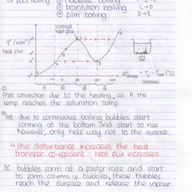 ② nucleate boiling
③ transition boiling C→D
④ film boiling D→E
critical heat flux
q" (W/m²)
heat flux
ΔT = Ts - Tsat (°C)
①
Free convection due to the heating, at A the
temp reaches the saturation temp
②
AB due to continuous boiling bubbles start
forming at the bottom and start to rise
however, only half way not to the surface.
↳ this disturbance increases the heat
transfer co-efficient heat flux increases
BC bubbles form at a faster rate and start
to form columns of bubbles, these bubbles
reach the surface and release the vapour